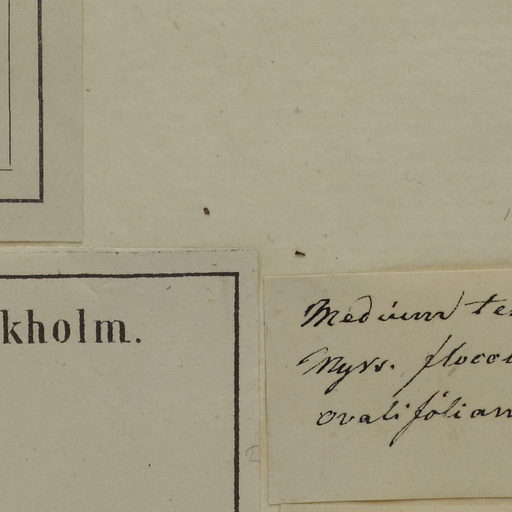 kholm.
Medium te
Myrs. flocc
ovalifolian